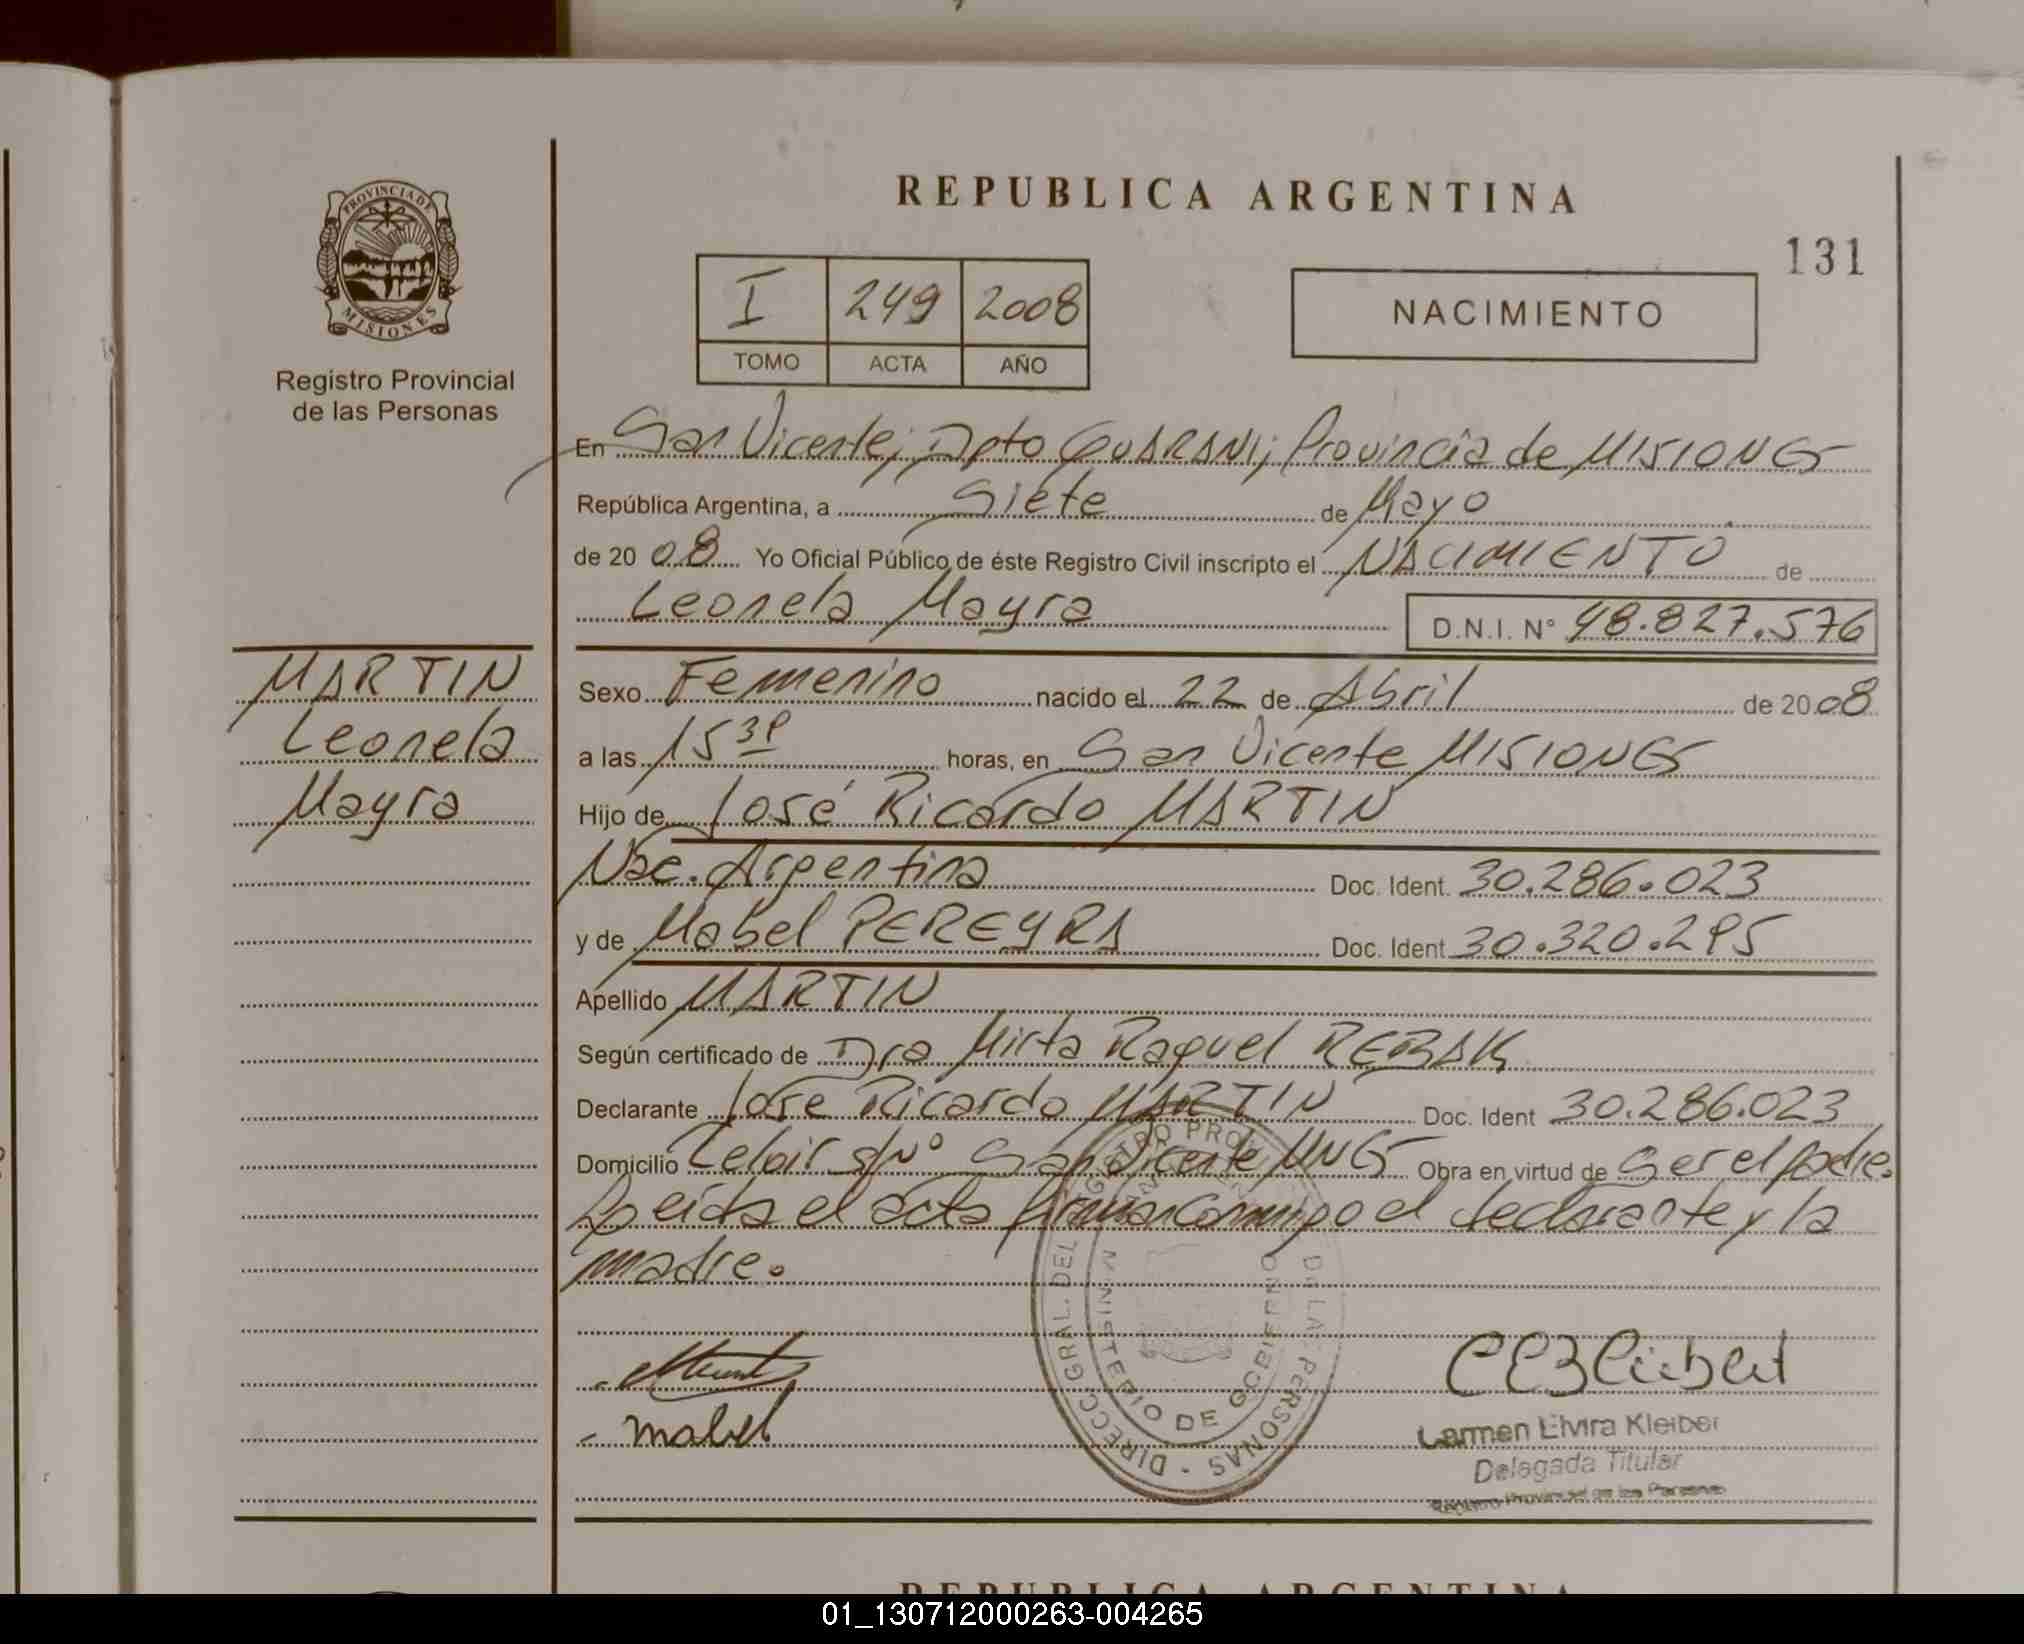 PROVINCIA DE
MISIONES
Registro Provincial
de las Personas
REPUBLICA ARGENTINA
131
I 249 2008
TOMO ACTA AÑO
NACIMIENTO
En San Vicente; Dpto GUARANI; Provincia de MISIONES
República Argentina, a Siete de Mayo
de 2008 Yo Oficial Público de éste Registro Civil inscripto el NACIMIENTO de
Leonela Mayra D.N.I. N° 48.827.576
MARTIN
Leonela
Mayra
Sexo Femenino nacido el 22 de Abril de 2008
a las 15 horas, en San Vicente MISIONES
Hijo de José Ricardo MARTIN
Nac. Argentina Doc. Ident. 30.286.023
y de Mabel PEREYRA Doc. Ident 30.320.295
Apellido MARTIN
Según certificado de Dra Mirta Raquel REBAK
Declarante José Ricardo MARTIN Doc. Ident 30.286.023
Domicilio Leloir s/N° San Vicente MNES Obra en virtud de Ser el padre.
Leida el acta firman conmigo el declarante y la
madre.
DIRECC. GRAL. DEL REGISTRO PROVINCIAL DE LAS PERSONAS
MINISTERIO DE GOBIERNO
mabel
Carmen Elvira Kleiber
Delegada Titular
Registro Provincial de las Personas
REPUBLICA ARGENTINA
01_130712000263-004265